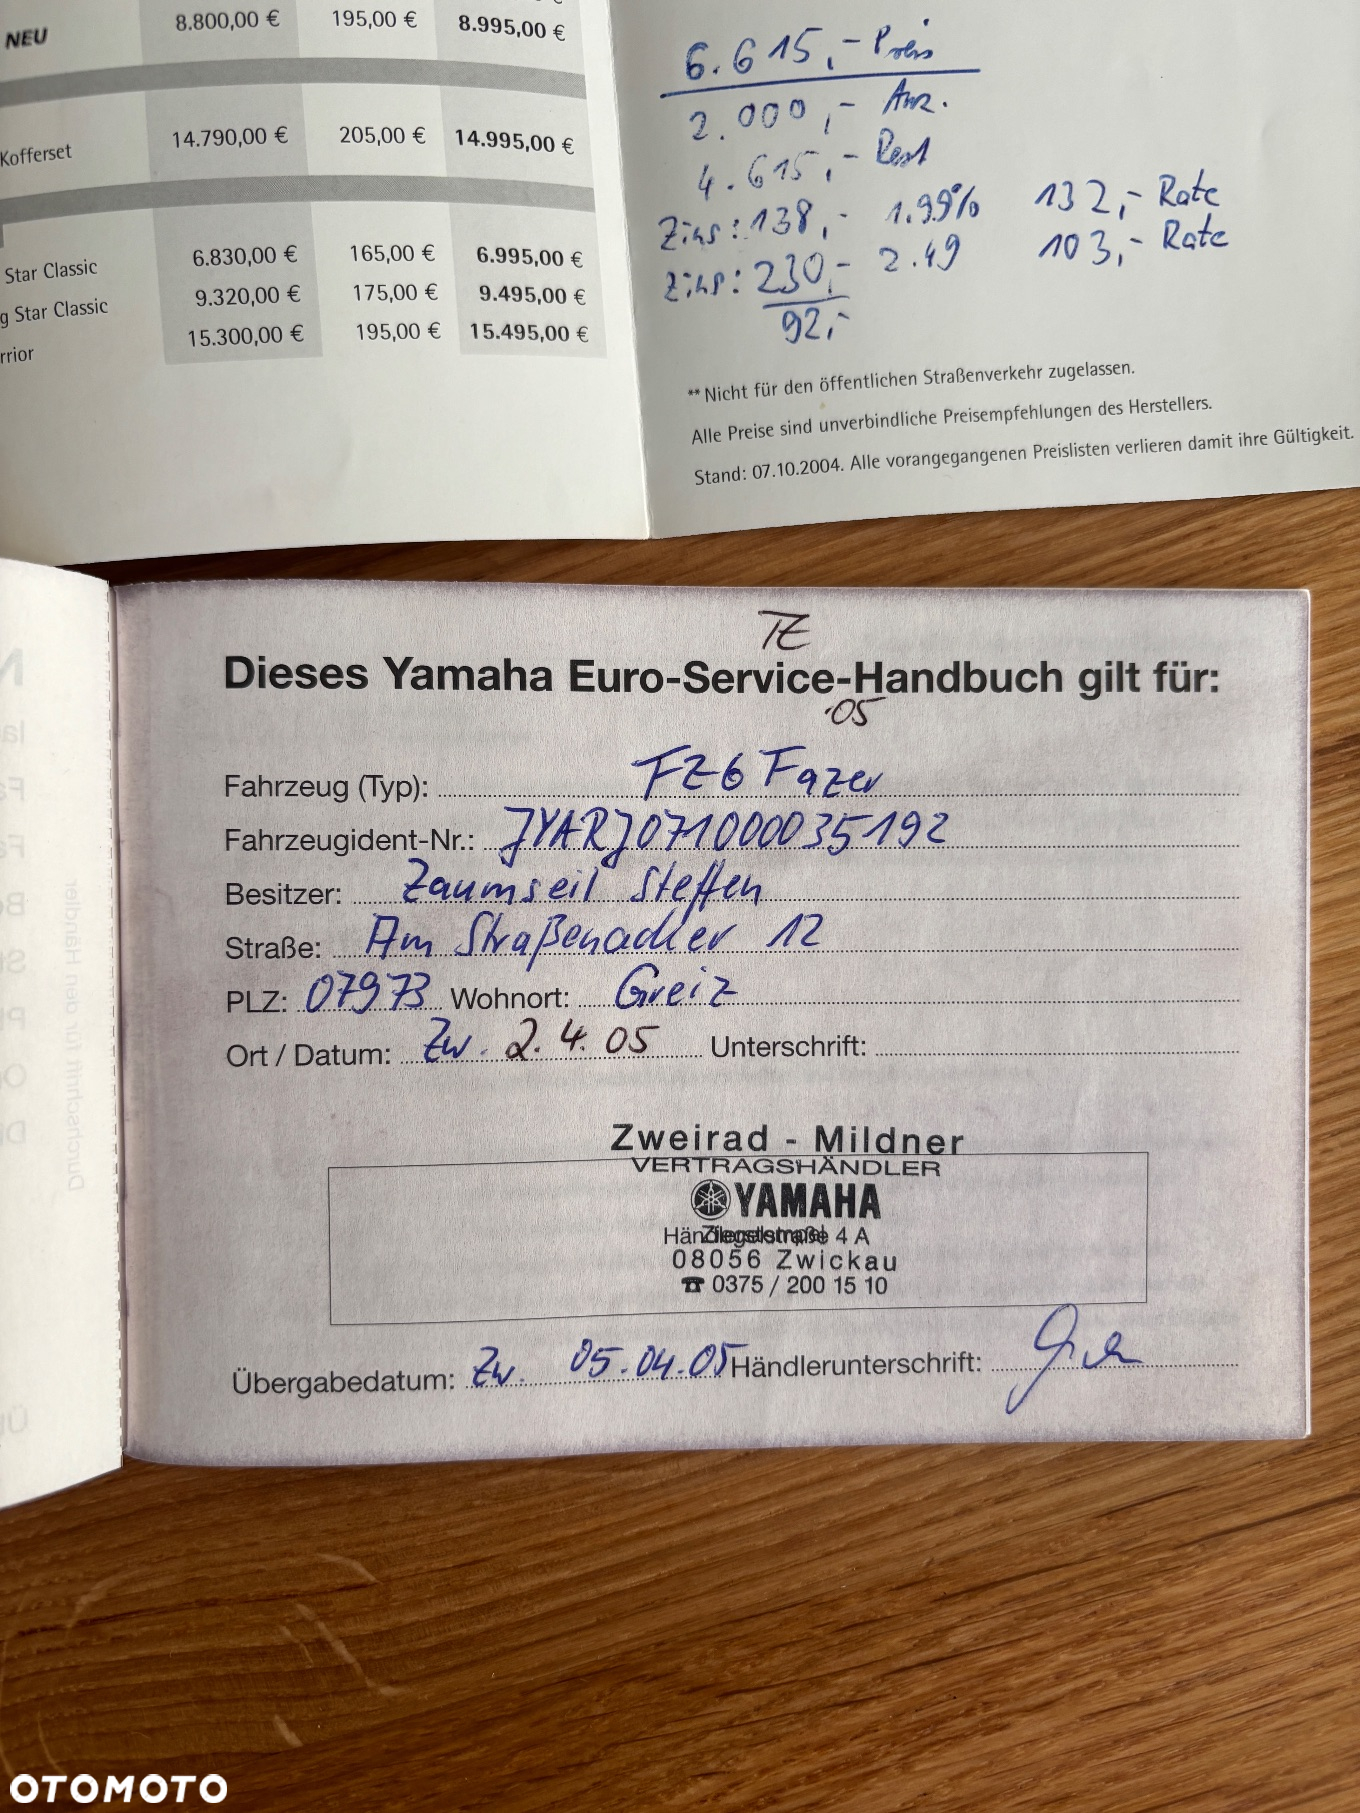 NEU 8.800,00 € 195,00 € 8.995,00 €
Kofferset 14.790,00 € 205,00 € 14.995,00 €
Star Classic 6.830,00 € 165,00 € 6.995,00 €
g Star Classic 9.320,00 € 175,00 € 9.495,00 €
rrior 15.300,00 € 195,00 € 15.495,00 €
6.615,- Preis
2.000,- Anz.
4.615,- Rest
Zins: 138,- 1.99% 132,- Rate
Zins: 230,- 2.49 103,- Rate
92,-
** Nicht für den öffentlichen Straßenverkehr zugelassen.
Alle Preise sind unverbindliche Preisempfehlungen des Herstellers.
Stand: 07.10.2004. Alle vorangegangenen Preislisten verlieren damit ihre Gültigkeit.
Dieses Yamaha Euro-Service-Handbuch gilt für:
05
Fahrzeug (Typ): FZ6 Fazer
Fahrzeugident-Nr.: JYARJ071000035192
Besitzer: Zaumseil Steffen
Straße: Am Straßenacker 12
PLZ: 07973 Wohnort: Greiz
Ort / Datum: Zw. 2.4.05 Unterschrift:
Durchschrift für den Händler
Zweirad - Mildner
VERTRAGSHÄNDLER
YAMAHA
4 A
08056 Zwickau
☎ 0375 / 200 15 10
Übergabedatum: Zw. 05.04.05 Händlerunterschrift:
OTOMOTO